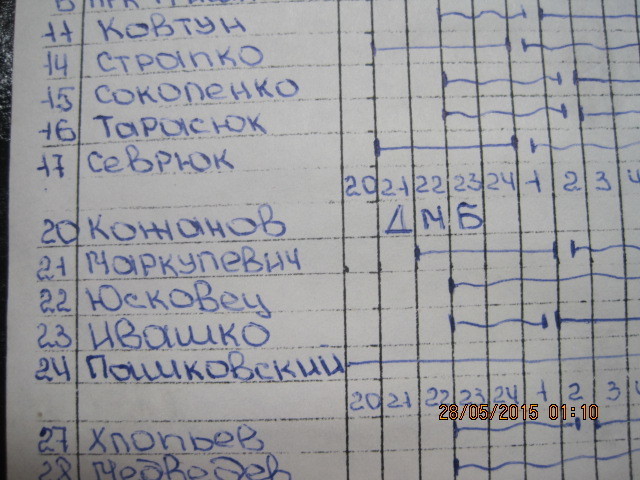 11 Ковтун
14 Страпко
15 Соколенко
16 Тарасюк
17 Севрюк
20 21 22 23 24 1 2 3 4
20 Кожанов Д М Б
21 Маркулевич
22 Юсковец
23 Ивашко
24 Пашковский
20 21 22 23 24 1 2 3
28/05/2015 01:10
27 Хлопьев
28 Медведев